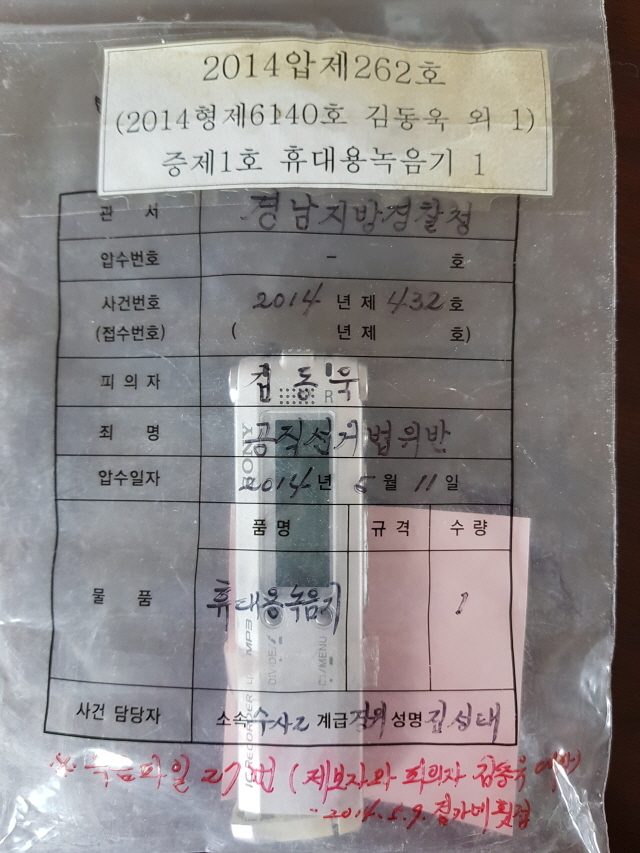 2014압제262호
(2014형제6140호 김동욱 외 1)
증제1호 휴대용녹음기 1
관 서 경남지방경찰청
압수번호 - 호
사건번호 2014 년 제 432 호
(접수번호) ( 년 제 호)
피의자 김동욱
R
죄 명 공직선거법위반
SONY
압수일자 2014년 5월 11일
품명 규격 수량
물 품 휴대용녹음기 1
MP3
DIVIDE
/MENU
IC RECORDER
사건 담당자 소속 수사2 계급 경위 성명 김성태
※ 녹음파일 27번 (제보자와 피의자 김동욱
2014.5.9.